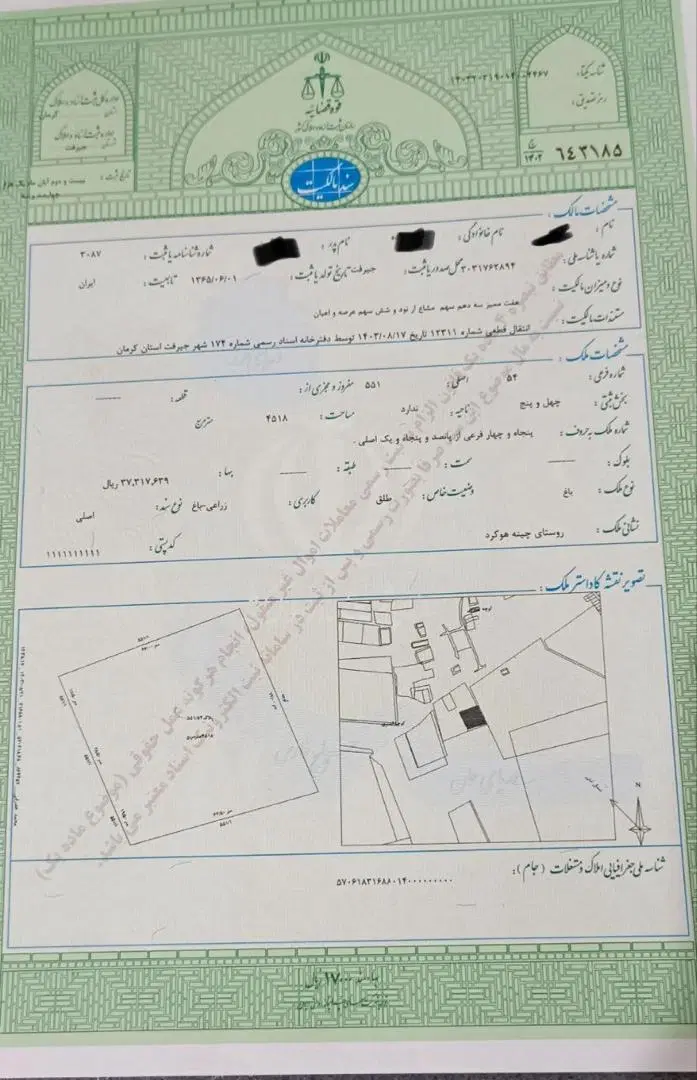 قوه قضاییه
سازمان ثبت اسناد و املاک کشور
اداره کل ثبت اسناد و املاک
استان: کرمان
اداره ثبت اسناد و املاک
جیرفت
تاریخ ثبت: بیست و دوم آبان ماه یک هزار
شناسه یکتا:
رمز تصدیق:
۶۴۳۱۸۵
۱۴۰۲
سند مالکیت
مشخصات مالک:
نام: نام خانوادگی: نام پدر: شماره شناسنامه یا ثبت: ۳۰۸۷
شماره یا شناسه ملی: ۳۰۳۱۷۶۲۸۹۴ محل صدور یا ثبت: جیرفت تاریخ تولد یا ثبت: ۱۳۶۵/۰۶/۰۱ تابعیت: ایران
نوع و میزان مالکیت: هفت ممیز سه دهم سهم مشاع از نود و شش سهم عرصه و اعیان
مستندات مالکیت: انتقال قطعی شماره ۱۲۳۱۱ تاریخ ۱۴۰۳/۰۸/۱۷ توسط دفترخانه اسناد رسمی شماره ۱۷۴ شهر جیرفت استان کرمان
مشخصات ملک:
شماره فرعی: ۵۴ اصلی: ۵۵۱ مفروز و مجزی از: قطعه:
بخش ثبتی: چهل و پنج ناحیه: ندارد مساحت: ۴۵۱۸ مترمربع
شماره ملک به حروف: پنجاه و چهار فرعی از پانصد و پنجاه و یک اصلی.
بلوک: سمت: طبقه: بها: ۳۷,۳۱۷,۶۳۹ ریال
نوع ملک: باغ وضعیت خاص: طلق کاربری: زراعی-باغ نوع سند: اصلی
نشانی ملک: روستای چینه هوکرد کدپستی: ۱۱۱۱۱۱۱۱۱۱
تصویر نقشه کاداستر ملک:
N
شناسه ملی جغرافیایی املاک و مستغلات (جام):